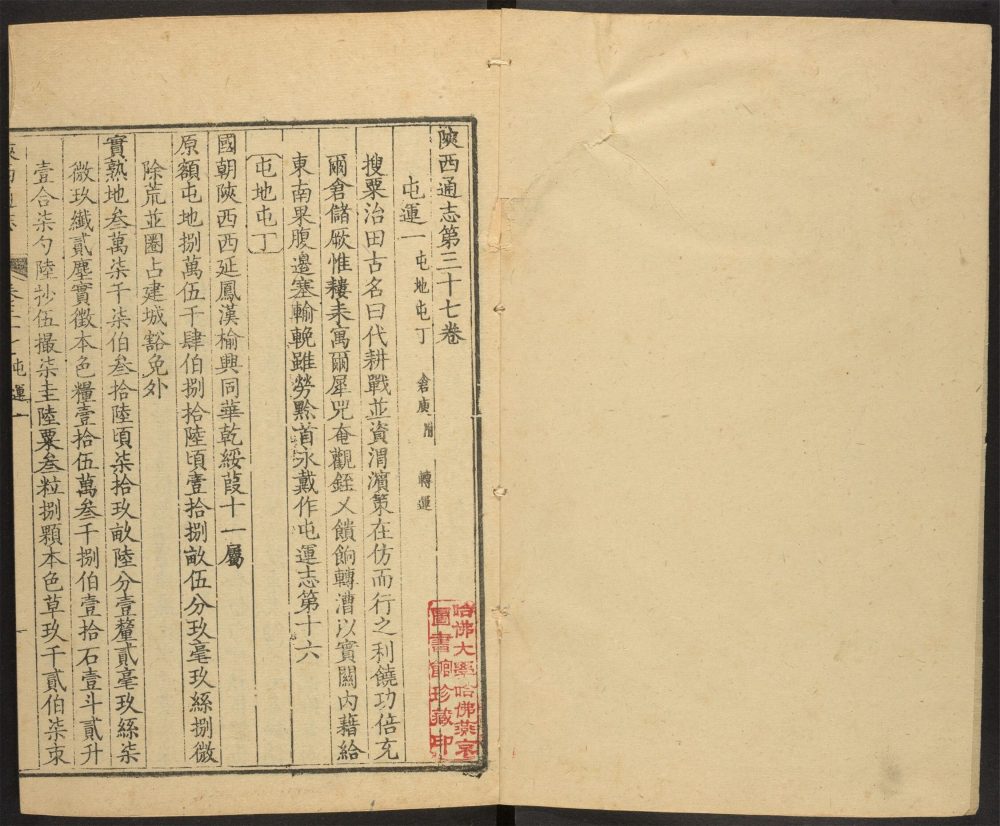 陝西通志第三十七卷
屯運一 屯地屯丁 倉庾附 轉運
搜粟治田古名曰代耕戰並資渭濵策在仿而行之利饒功倍充
爾倉儲厥惟耬耒寓爾犀兕奄觀銍乂饋餉轉漕以實關内藉給
東南果腹邉塞輸輓雖勞黔首永戴作屯運志第十六
屯地屯丁
國朝陝西西延鳳漢榆興同華乾綏葭十一屬
原額屯地捌萬伍千肆伯捌拾陸頃壹拾捌畝伍分玖毫玖絲捌微
除荒並圈占建城豁免外
實熟地叁萬柒千柒伯叁拾陸頃柒拾玖畝陸分壹釐貳毫玖絲柒
微玖纖貳塵實徵本色糧壹拾伍萬叁千捌伯壹拾石壹斗貳升
壹合柒勺陸抄伍撮柒圭陸粟叁粒捌顆本色草玖千貳伯柒束
屯運一
哈佛大學哈佛燕京
圖書館珍藏印